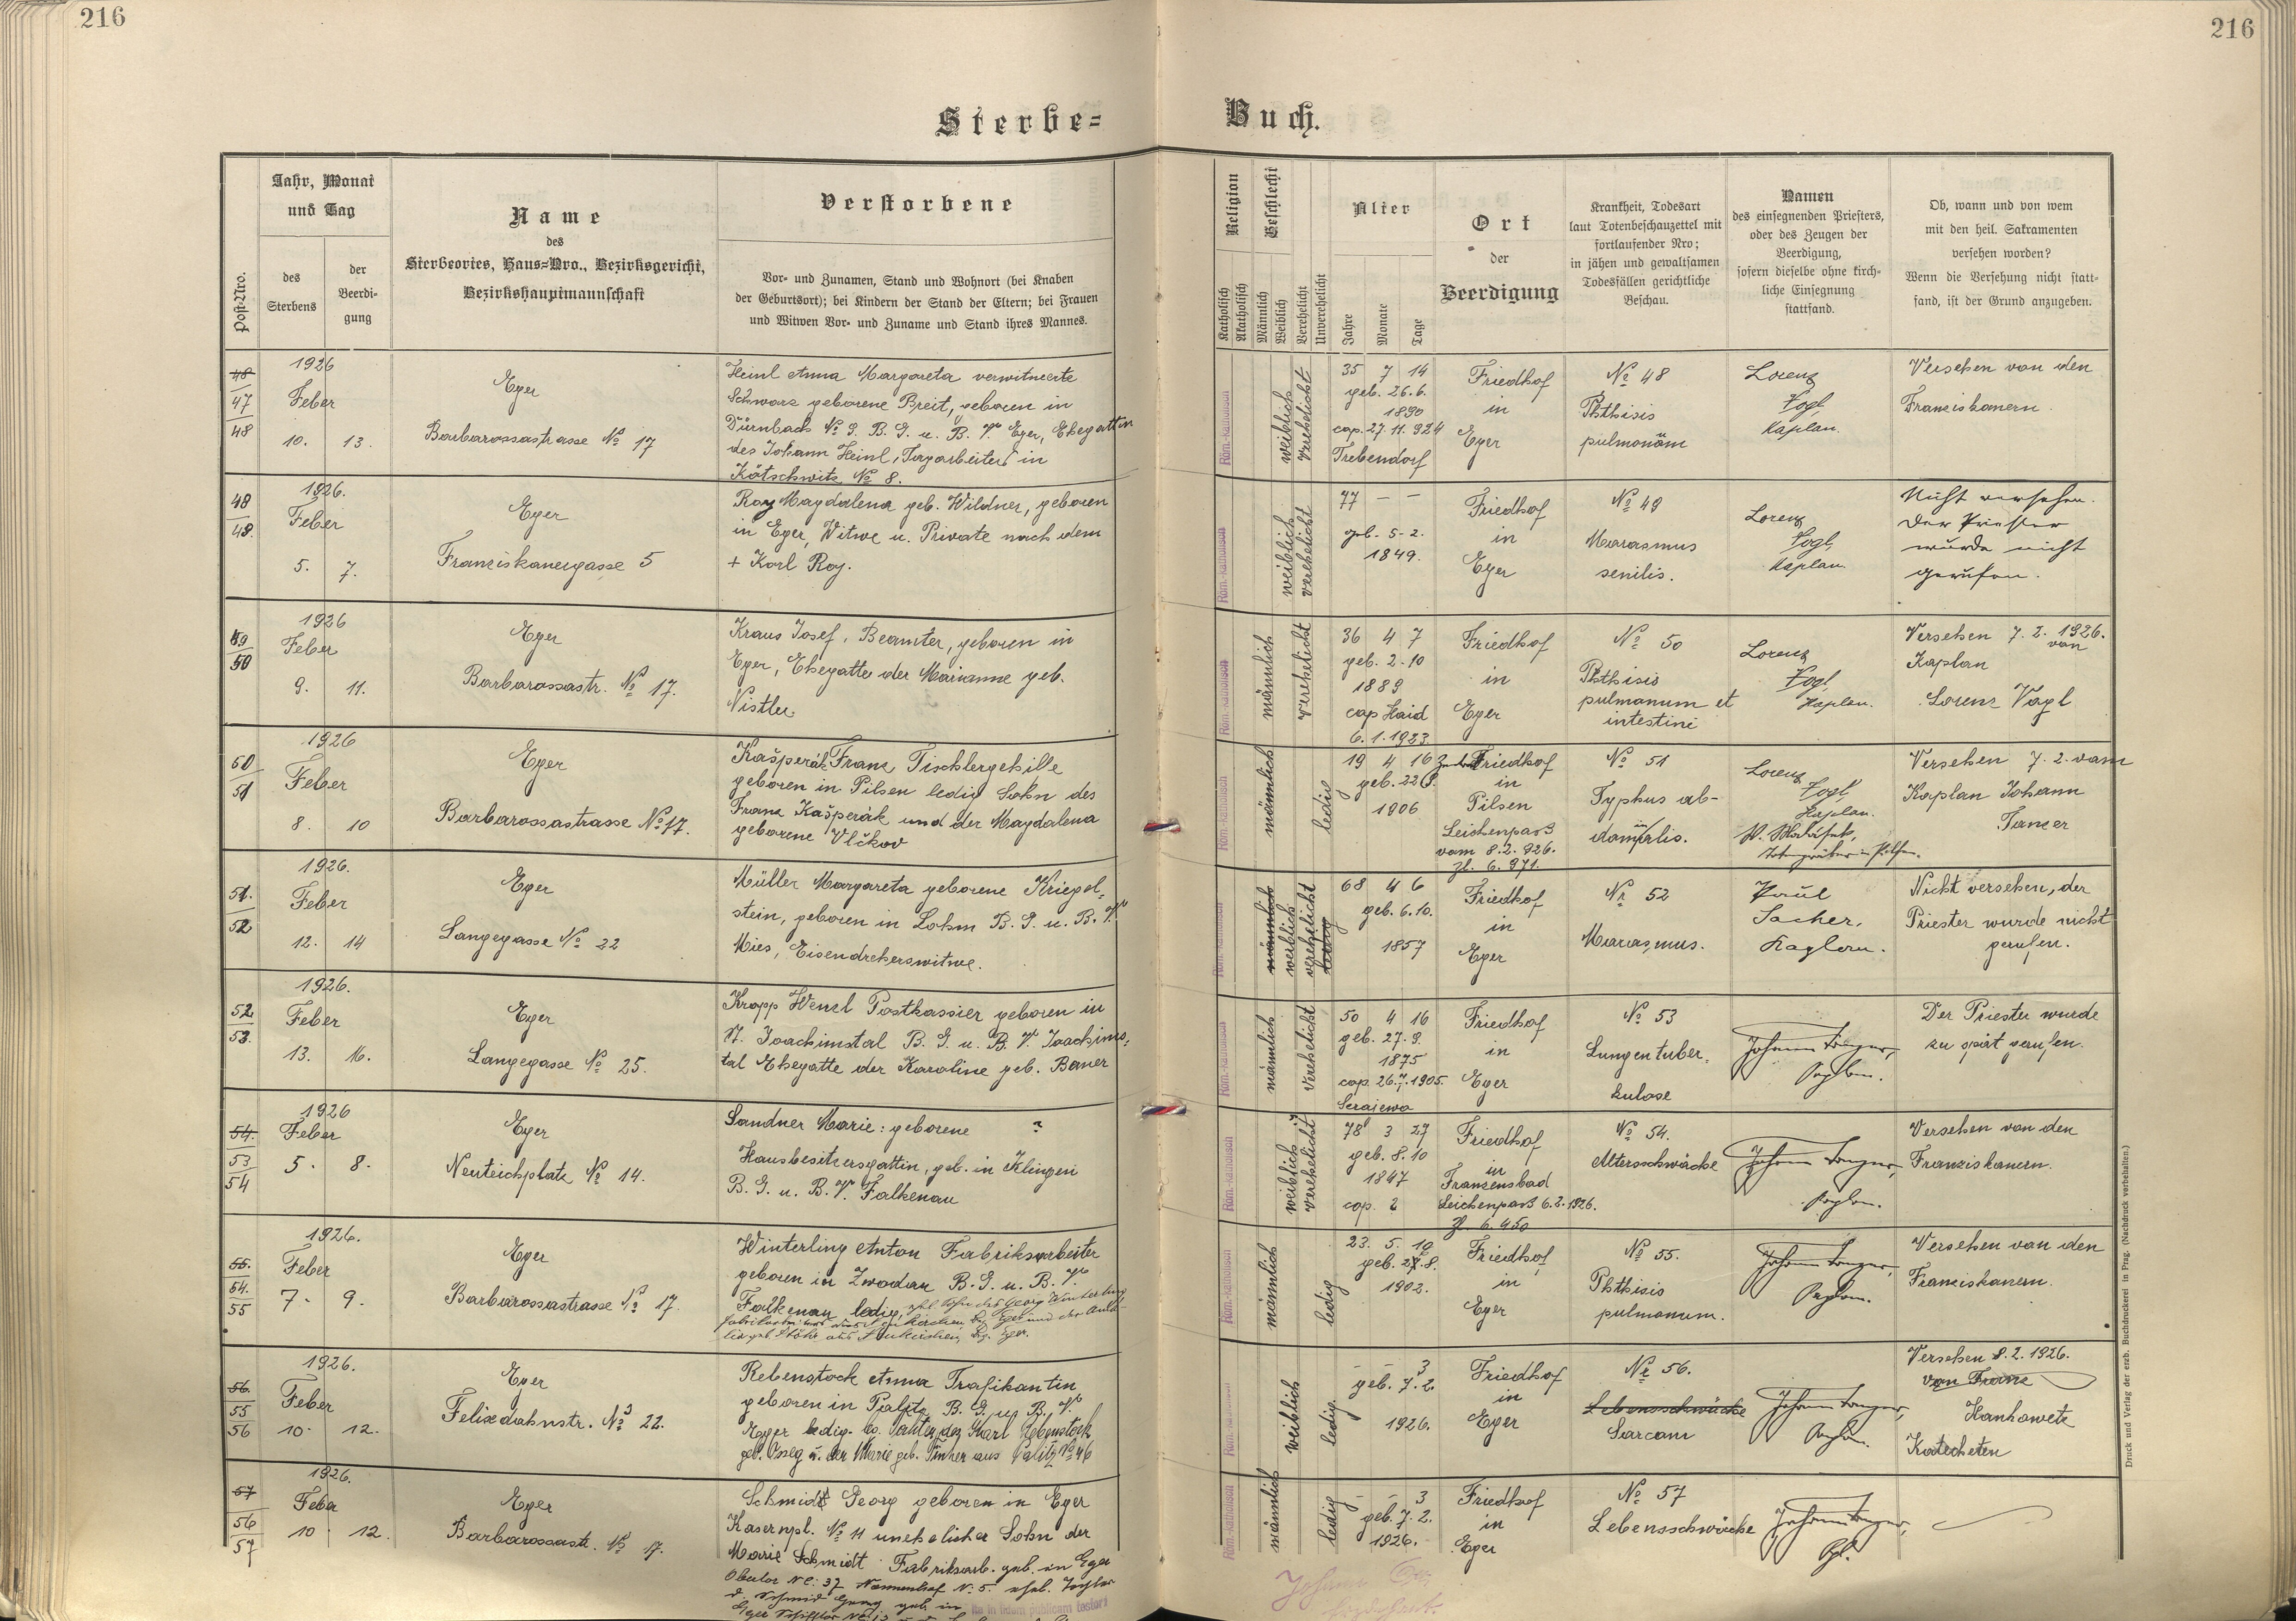 216
216
Sterbe=
Buch.
Post-Nro.
Jahr, Monat
und Tag
des
Sterbens
der
Beerdi-
gung
Name
des
Sterbeortes, Haus=Nro., Bezirksgericht,
Bezirkshauptmannschaft
Verstorbene
Vor- und Zunamen, Stand und Wohnort (bei Knaben
der Geburtsort); bei Kindern der Stand der Eltern; bei Frauen
und Witwen Vor- und Zuname und Stand ihres Mannes.
Religion
Katholisch
Akatholisch
Geschlecht
Männlich
Weiblich
Verehelicht
Unverehelicht
Alter
Jahre
Monate
Tage
Ort
der
Beerdigung
Krankheit, Todesart
laut Totenbeschauzettel mit
fortlaufender Nro;
in jähen und gewaltsamen
Todesfällen gerichtliche
Beschau.
Namen
des einsegnenden Priesters,
oder des Zeugen der
Beerdigung,
sofern dieselbe ohne kirch-
liche Einsegnung
stattfand.
Ob, wann und von wem
mit den heil. Sakramenten
versehen worden?
Wenn die Versehung nicht statt-
fand, ist der Grund anzugeben.
48
47
48
1926
Feber
10. 13.
Eger
Barbarossastrasse No 17
Heinl Anna Margareta verwitweete
Schwarz geborene Breit, geboren in
Dürnbach No 9. B. G. u. B. V. Eger, Ehegattin
des Johann Heinl, Tagarbeiters in
Kötschwitz No 8.
Röm.-katholisch
weiblich
verehelicht
35 7 14
geb. 26.6.
1890
cop. 27.11.924
Trebendorf
Friedhof
in
Eger
No 48
Phthisis
pulmonöm
Lorenz
Vogl,
Kaplan.
Versehen von den
Franziskanern.
48
49.
1926.
Feber
5. 7.
Eger
Franziskanergasse 5
Roy Magdalena geb. Wildner, geboren
in Eger, Witwe u. Private nach dem
+ Karl Roy.
Röm.-katholisch
weiblich
verehelicht
77 - -
geb. 5-2.
1849.
Friedhof
in
Eger
No 49
Marasmus
senilis.
Lorenz
Vogl,
Kaplan.
Nicht versehen.
Der Priester
wurde nicht
gerufen.
49
50
1926
Feber
9. 11.
Eger
Barbarossastr. No 17.
Kraus Josef, Beamter, geboren in
Eger, Ehegatte der Marianne geb.
Nistler
Röm.-katholisch
männlich
verehelicht
36 4 7
geb. 2.10
1889
cop Haid
6.1.1923
Friedhof
in
Eger
No 50
Phthisis
pulmanum et
intestini
Lorenz
Vogl,
Kaplan.
Versehen 7.2.1926.
von
Kaplan
Lorenz Vogl
50
51
1926
Feber
8. 10
Eger
Barbarossastrasse No 17.
Kašperák Franz Tischlergehilfe
geboren in Pilsen ledig Sohn des
Franz Kašperák und der Magdalena
geborene Vlčkov
Röm.-katholisch
männlich
ledig
19 4 16
geb. 22.9.
1906
Friedhof
in
Pilsen
Leichenpass
vom 8.2.926.
Zl. 6.971.
No 51
Typhus ab-
dominalis.
Lorenz
Vogl,
Kaplan.
Versehen 7.2. vom
Kaplan Johann
51.
52
1926.
Feber
12. 14
Eger
Langegasse No 22
Müller Margareta geborene Kriegel-
stein, geboren in Lohm B. G. u. B. V.
Mies, Eisendreherswitwe.
männlich
weiblich
verehelicht
ledig
68 4 6
geb. 6.10.
1857
Friedhof
in
Eger
No 52
Marasmus.
Paul
Sacher,
Kaplan.
Nicht versehen, der
Priester wurde nicht
gerufen.
52
53.
1926.
Feber
13. 16.
Eger
Langegasse No 25.
Kropp Wenzl Postkassier geboren in
St. Joachimstal B. G. u. B. V. Joachims-
tal Ehegatte der Karoline geb. Bauer
Röm.-katholisch
männlich
verehelicht
50 4 16
geb. 27.9.
1875
cop. 26.7.1905.
Serajewo
Friedhof
in
Eger
No 53
Lungentuber-
kulose
Johann
Kaplan.
Der Priester wurde
zu spät gerufen.
54.
53
54
1926
Feber
5. 8.
Eger
Neuteichplatz No 14.
Sandner Marie: geborene ?
Hausbesitzersgattin, geb. in Klingen
B. G. u. B. V. Falkenau
Röm.-katholisch
weiblich
verehelicht
78 3 27
geb. 8.10
1847
cop. ?
Friedhof
in
Franzensbad
Leichenpass 6.2.1926.
Zl. 6.450
No 54.
Altersschwäche
Johann
Kaplan.
Versehen von den
Franziskanern.
55.
54.
55
1926.
Feber
7. 9.
Eger
Barbarossastrasse No 17.
Winterling Anton Fabriksarbeiter
geboren in Zwodau B. G. u. B. V.
Falkenau ledig, ehl. Sohn des Georg Winterling
Röm.-katholisch
männlich
ledig
23. 5. 10
geb. 27.8.
1902.
Friedhof
in
Eger
No 55.
Phthisis
pulmanum.
Johann
Kaplan.
Versehen von den
Franziskanern.
56.
55
56
1926.
Feber
10. 12.
Eger
Felixdahnstr. No 22.
Rebenstock Anna Trafikantin
geboren in Palitz B. G. u. B. V.
Eger ledig. eh. Tochter des Karl Rebenstock
weiblich
ledig
- - 3
geb. 7.2.
1926.
Friedhof
in
Eger
No 56.
Lebensschwäche
Sarcom
Johann
Kaplan.
Versehen 8.2.1926.
von Franz
Hankowetz
Katecheten
57
56
57
1926.
Feber
10 12.
Eger
Barbarossastr. No 17.
Schmidt Georg geboren in Eger
Kasernpl. No 11 unehelicher Sohn der
Marie Schmidt Fabriksarb. geb. in Eger
Röm.-katholisch
männlich
ledig
- - 3
geb. 7.2.
1926.
Friedhof
in
Eger
No 57
Lebensschwäche
Johann
Kpl.
in fidem publicam testori
Druck und Verlag der erzb. Buchdruckerei in Prag. (Nachdruck vorbehalten.)